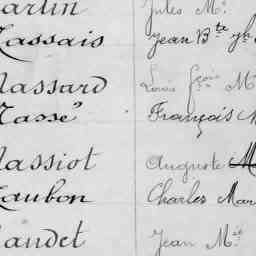 artin Jules M.
assais Jean Bte yh
assard Louis fçois M
assé François M
assiot Auguste M
aubon Charles Mar
audet Jean M.te